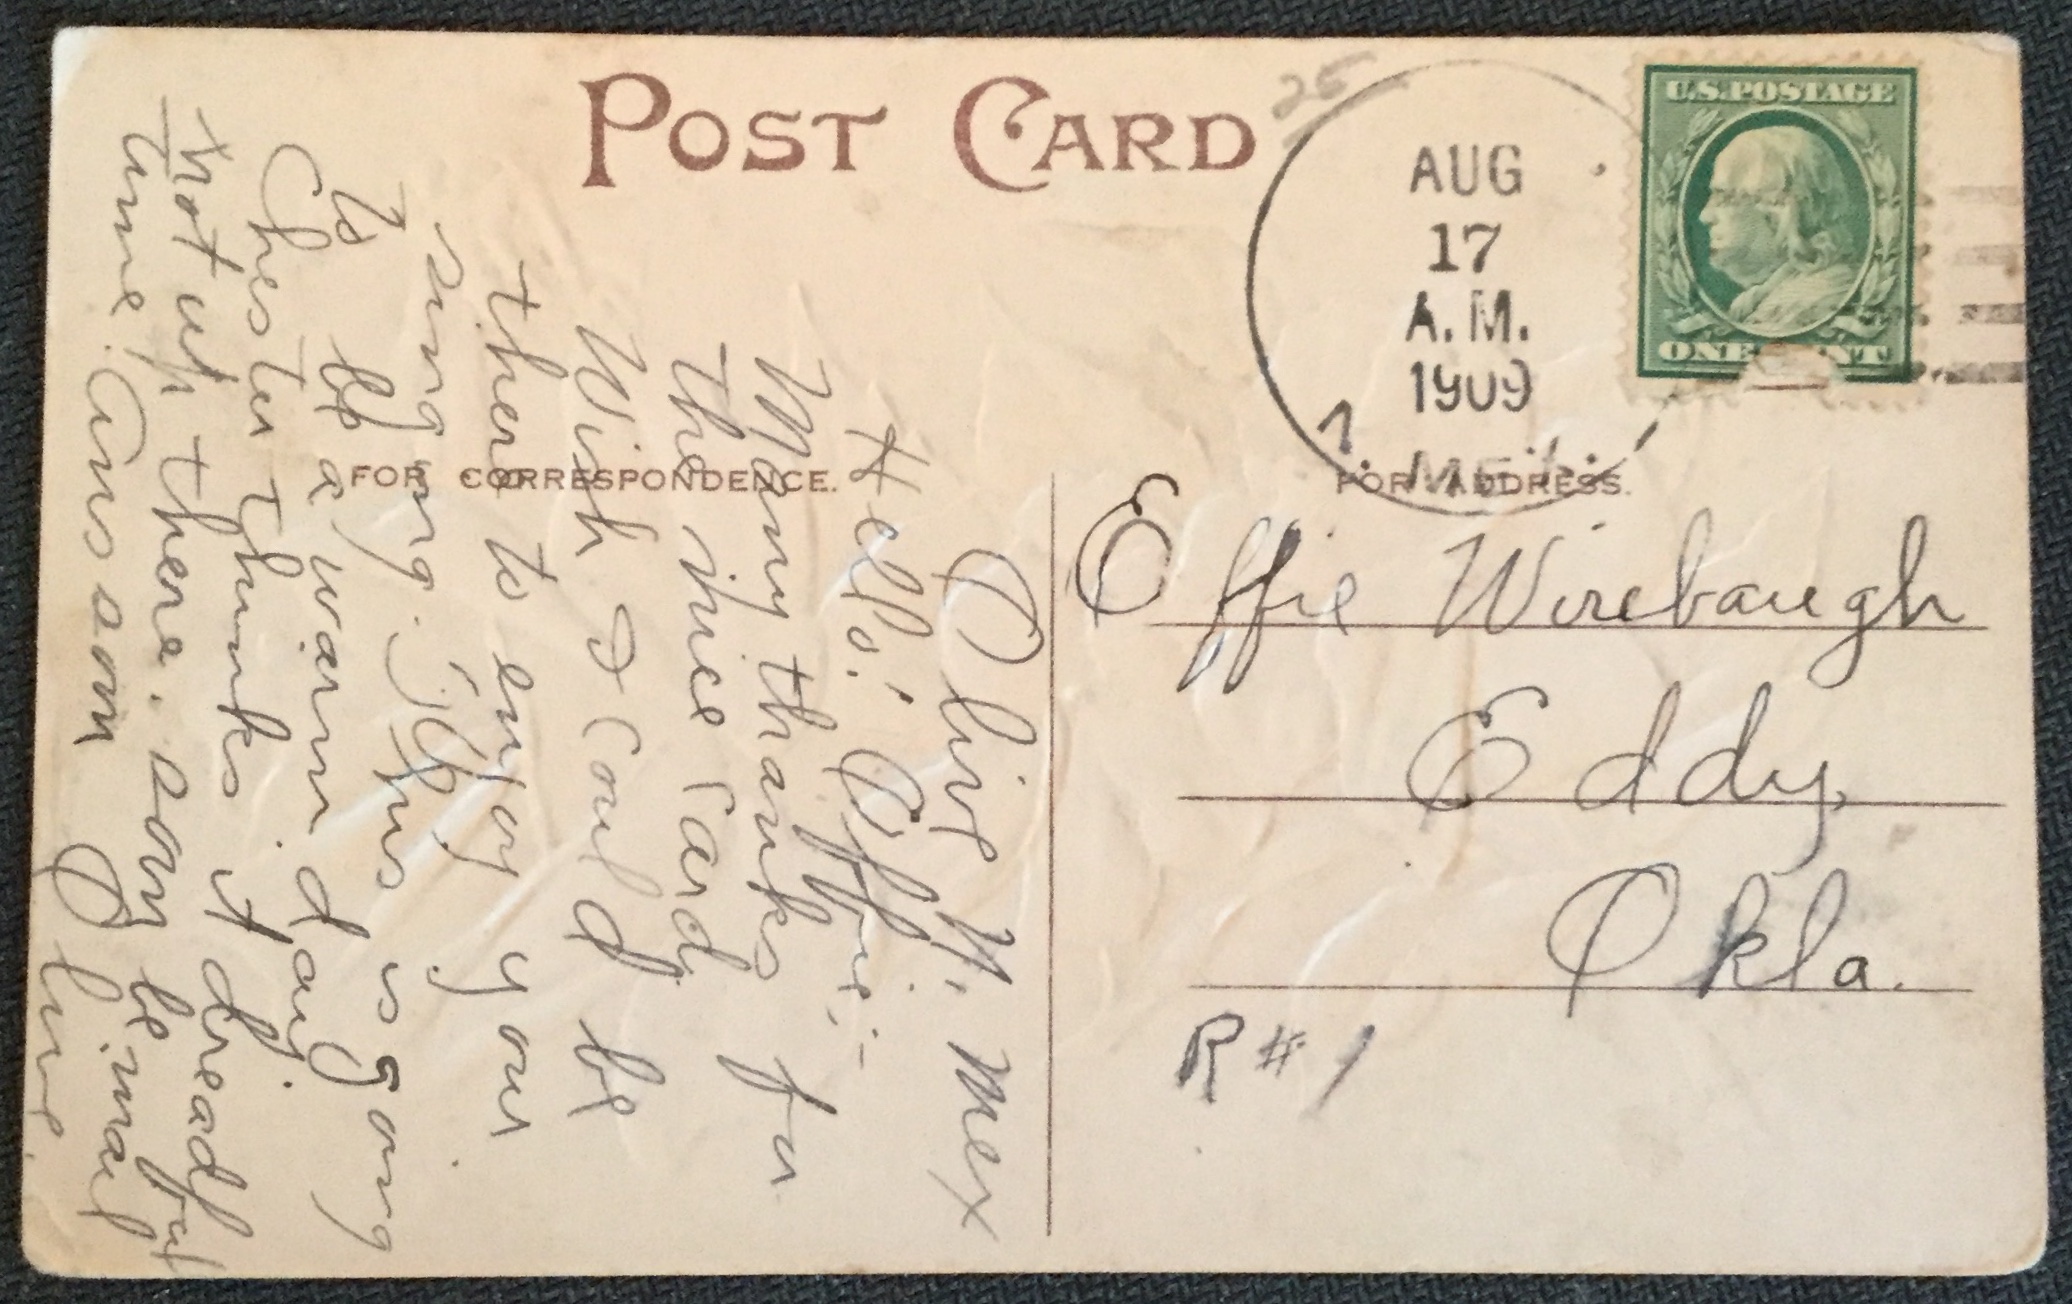 POST CARD
25
AUG
17
A.M.
1909
MEX.
U.S. POSTAGE
ONE CENT
FOR CORRESPONDENCE.
FOR ADDRESS.
Olive N. Mex
Hello! Effie:-
Many thanks for
the nice card,
Wish I could be
there to enjoy your
singing. This is going
to be a warm day.
Chester thinks it dreadful
hot up there. Say be
time. Ans soon Olive.
Effie Wirebaugh
Eddy,
Okla.
R#1